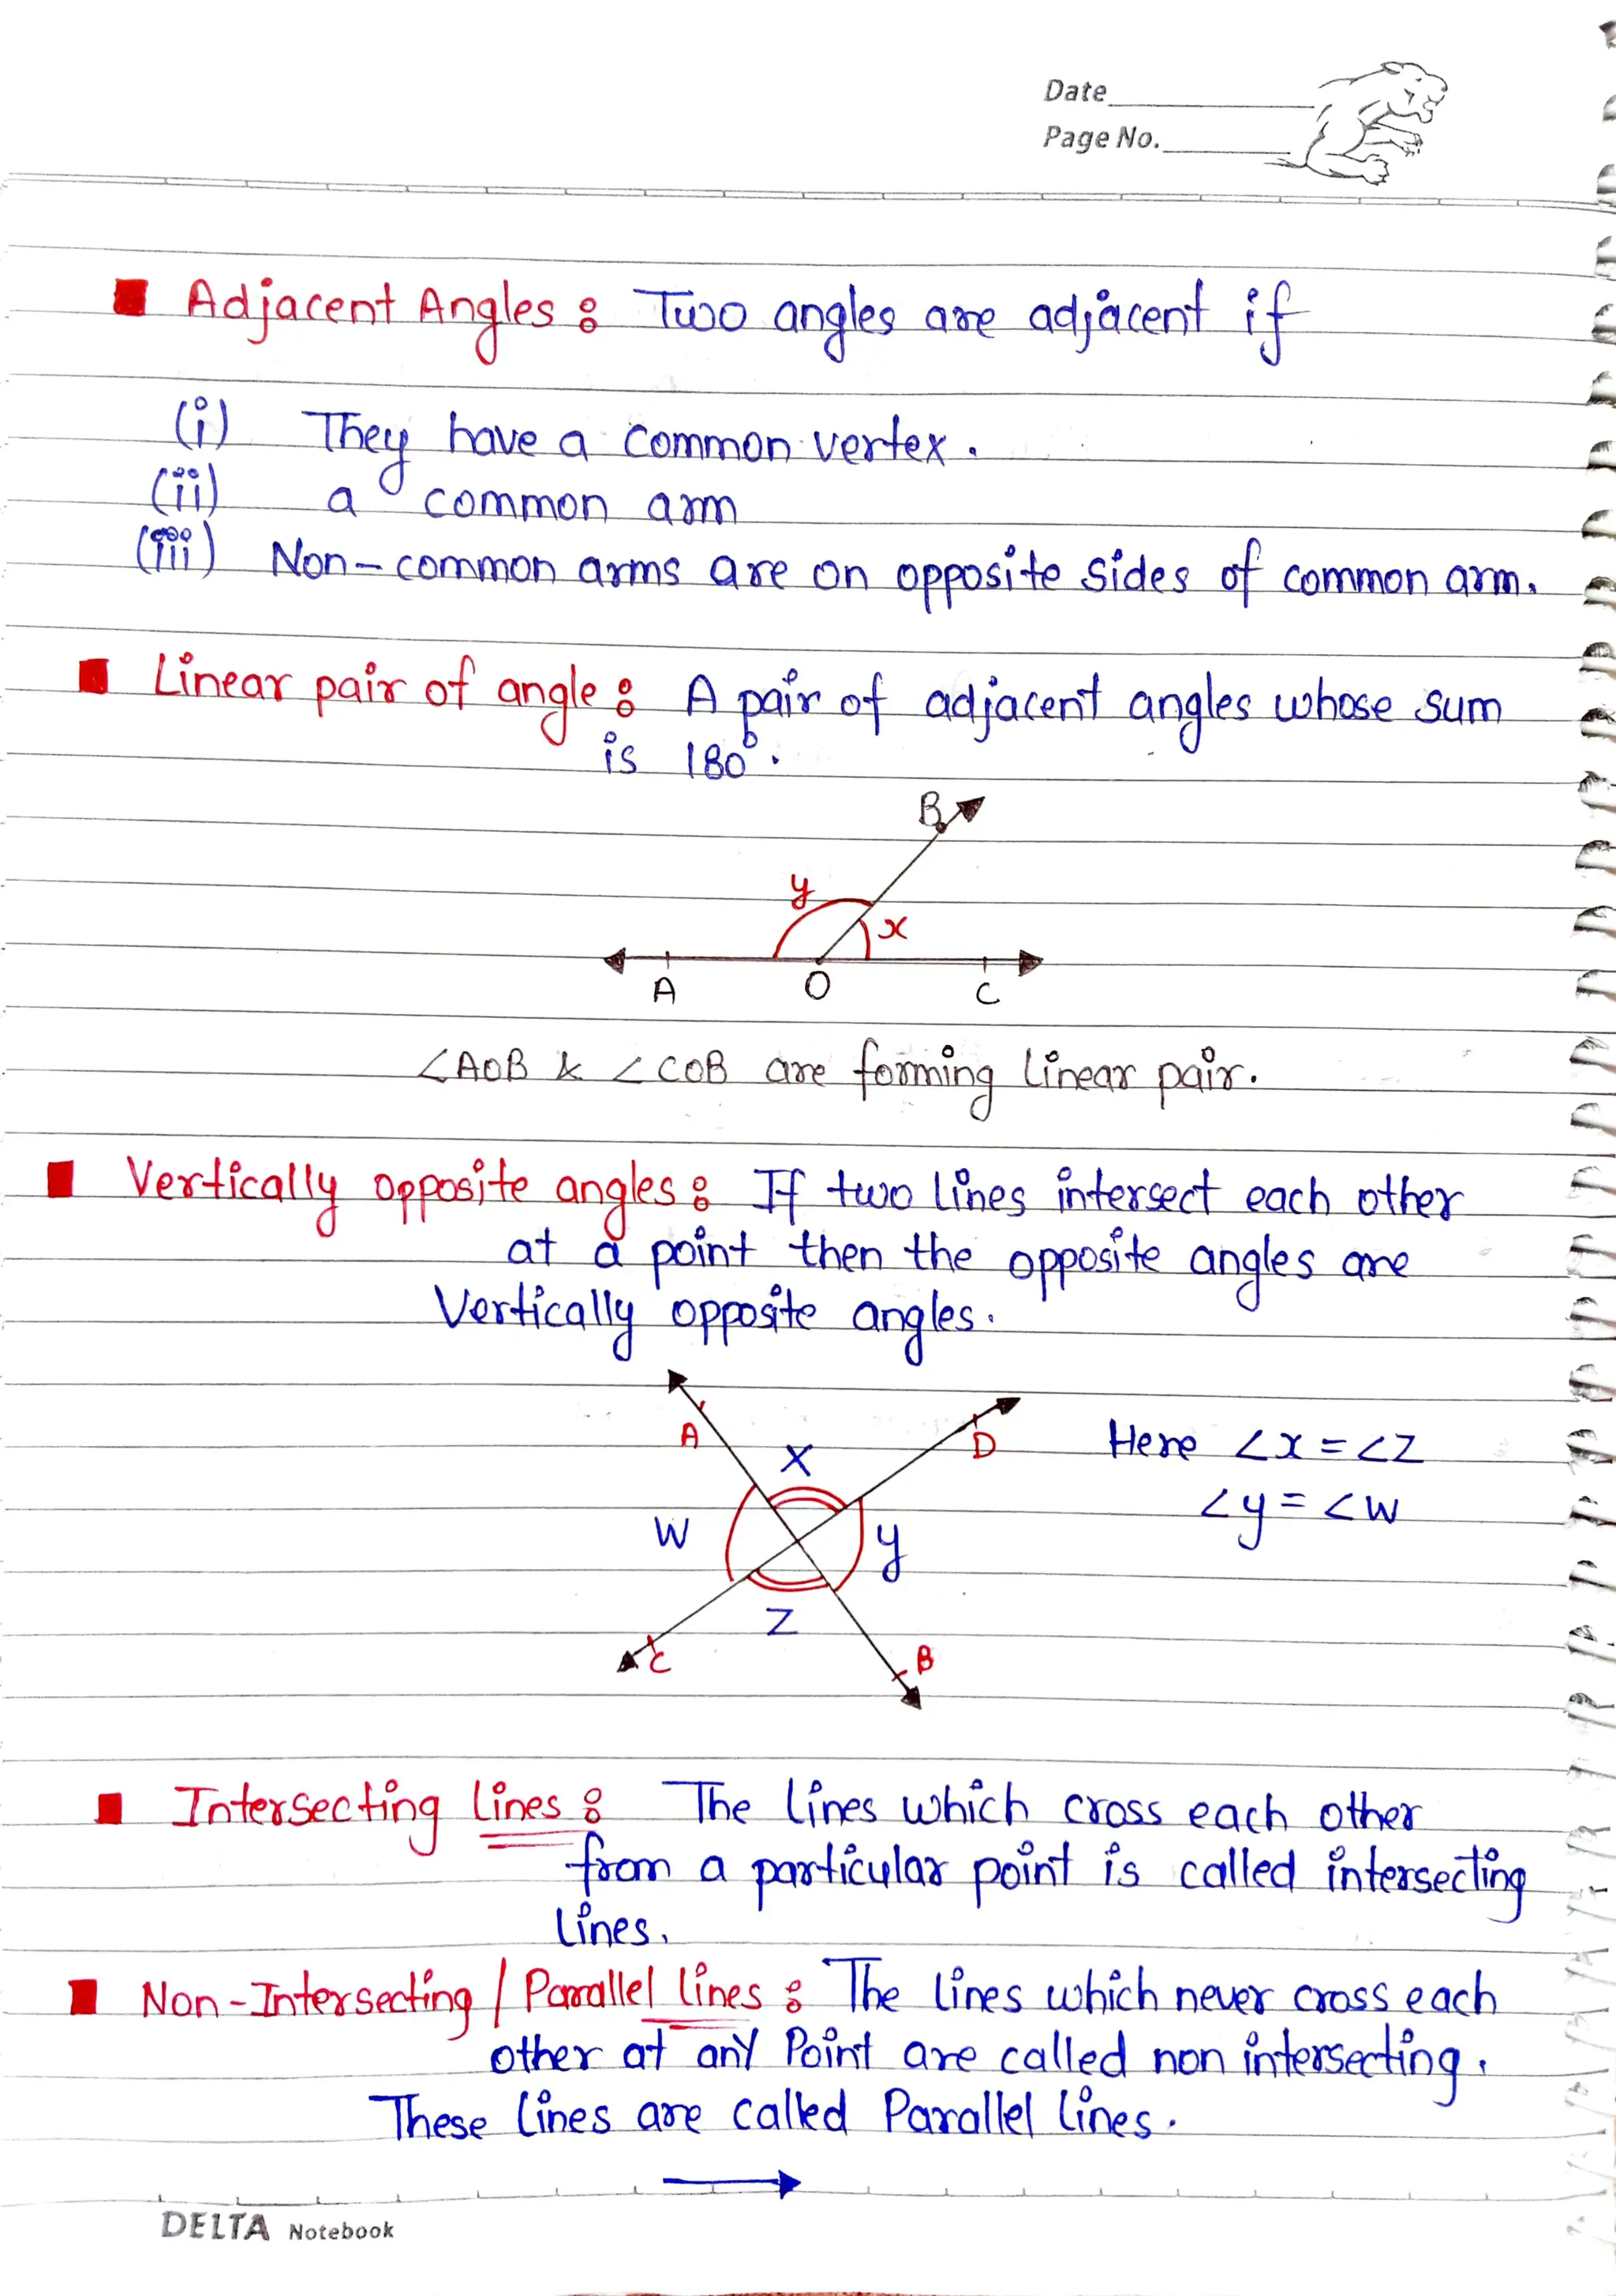 Date
Page No.
Adjacent Angles : Two angles are adjacent if
(i) They have a common vertex.
(ii) a common arm
(iii) Non-common arms are on opposite sides of common arm.
Linear pair of angle : A pair of adjacent angles whose sum
is 180°.
B
y
x
A O C
∠AOB & ∠COB are forming linear pair.
Vertically opposite angles : If two lines intersect each other
at a point then the opposite angles are
Vertically opposite angles.
A D Here ∠x = ∠z
X
∠y = ∠w
W y
Z
C B
Intersecting lines : The lines which cross each other
from a particular point is called intersecting
lines.
Non-Intersecting / Parallel lines : The lines which never cross each
other at any Point are called non intersecting.
These lines are called Parallel lines.
DELTA Notebook